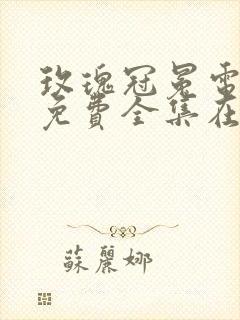 玫瑰冠冕電
免費全集在
蘇麗娜